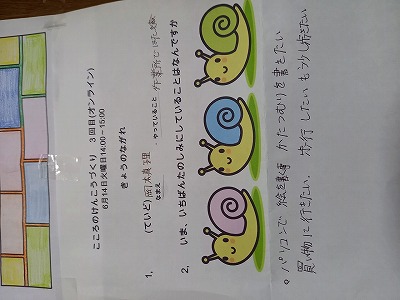 こころのけんこうづくり　3回目(オンライン)
6月14日火曜日14:00～15:00
きょうのながれ
1, (ていど) 岡 真理 ・やっていること 作業所で
なまえ
2, いま、いちばんたのしみにしていることはなんですか
・パソコンで 絵を かたつむりを書きたい
買い物に行きたい、歩行 したいも少し歩きたい